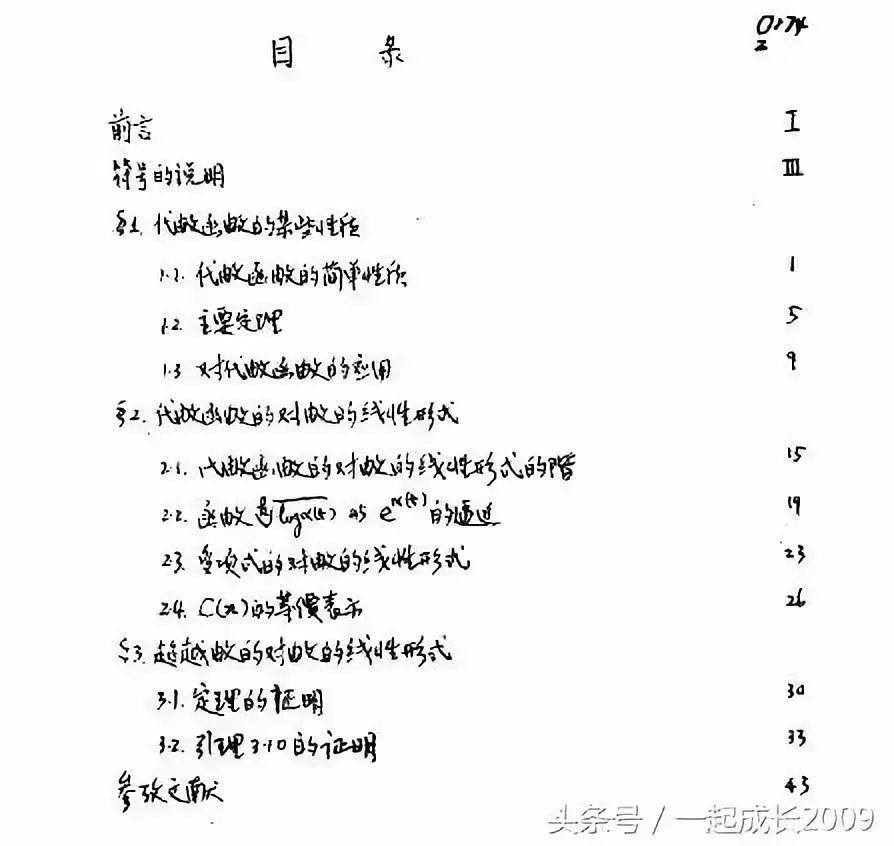 0174
2
目 录
前言 I
符号的说明 III
§1. 代数函数的某些性质
1.1. 代数函数的简单性质 1
1.2. 主要定理 5
1.3 对代数函数的应用 9
§2. 代数函数的对数的线性形式
2.1. 代数函数的对数的线性形式的阶 15
2.2. 函数 log α(z) 与 e^α(z) 的逼近 19
2.3. 多项式的对数的线性形式 23
2.4. C(n)的等价表示 26
§3. 超越数的对数的线性形式
3.1. 定理的证明 30
3.2. 引理3.10的证明 33
参考文献 43
头条号 / 一起成长2009